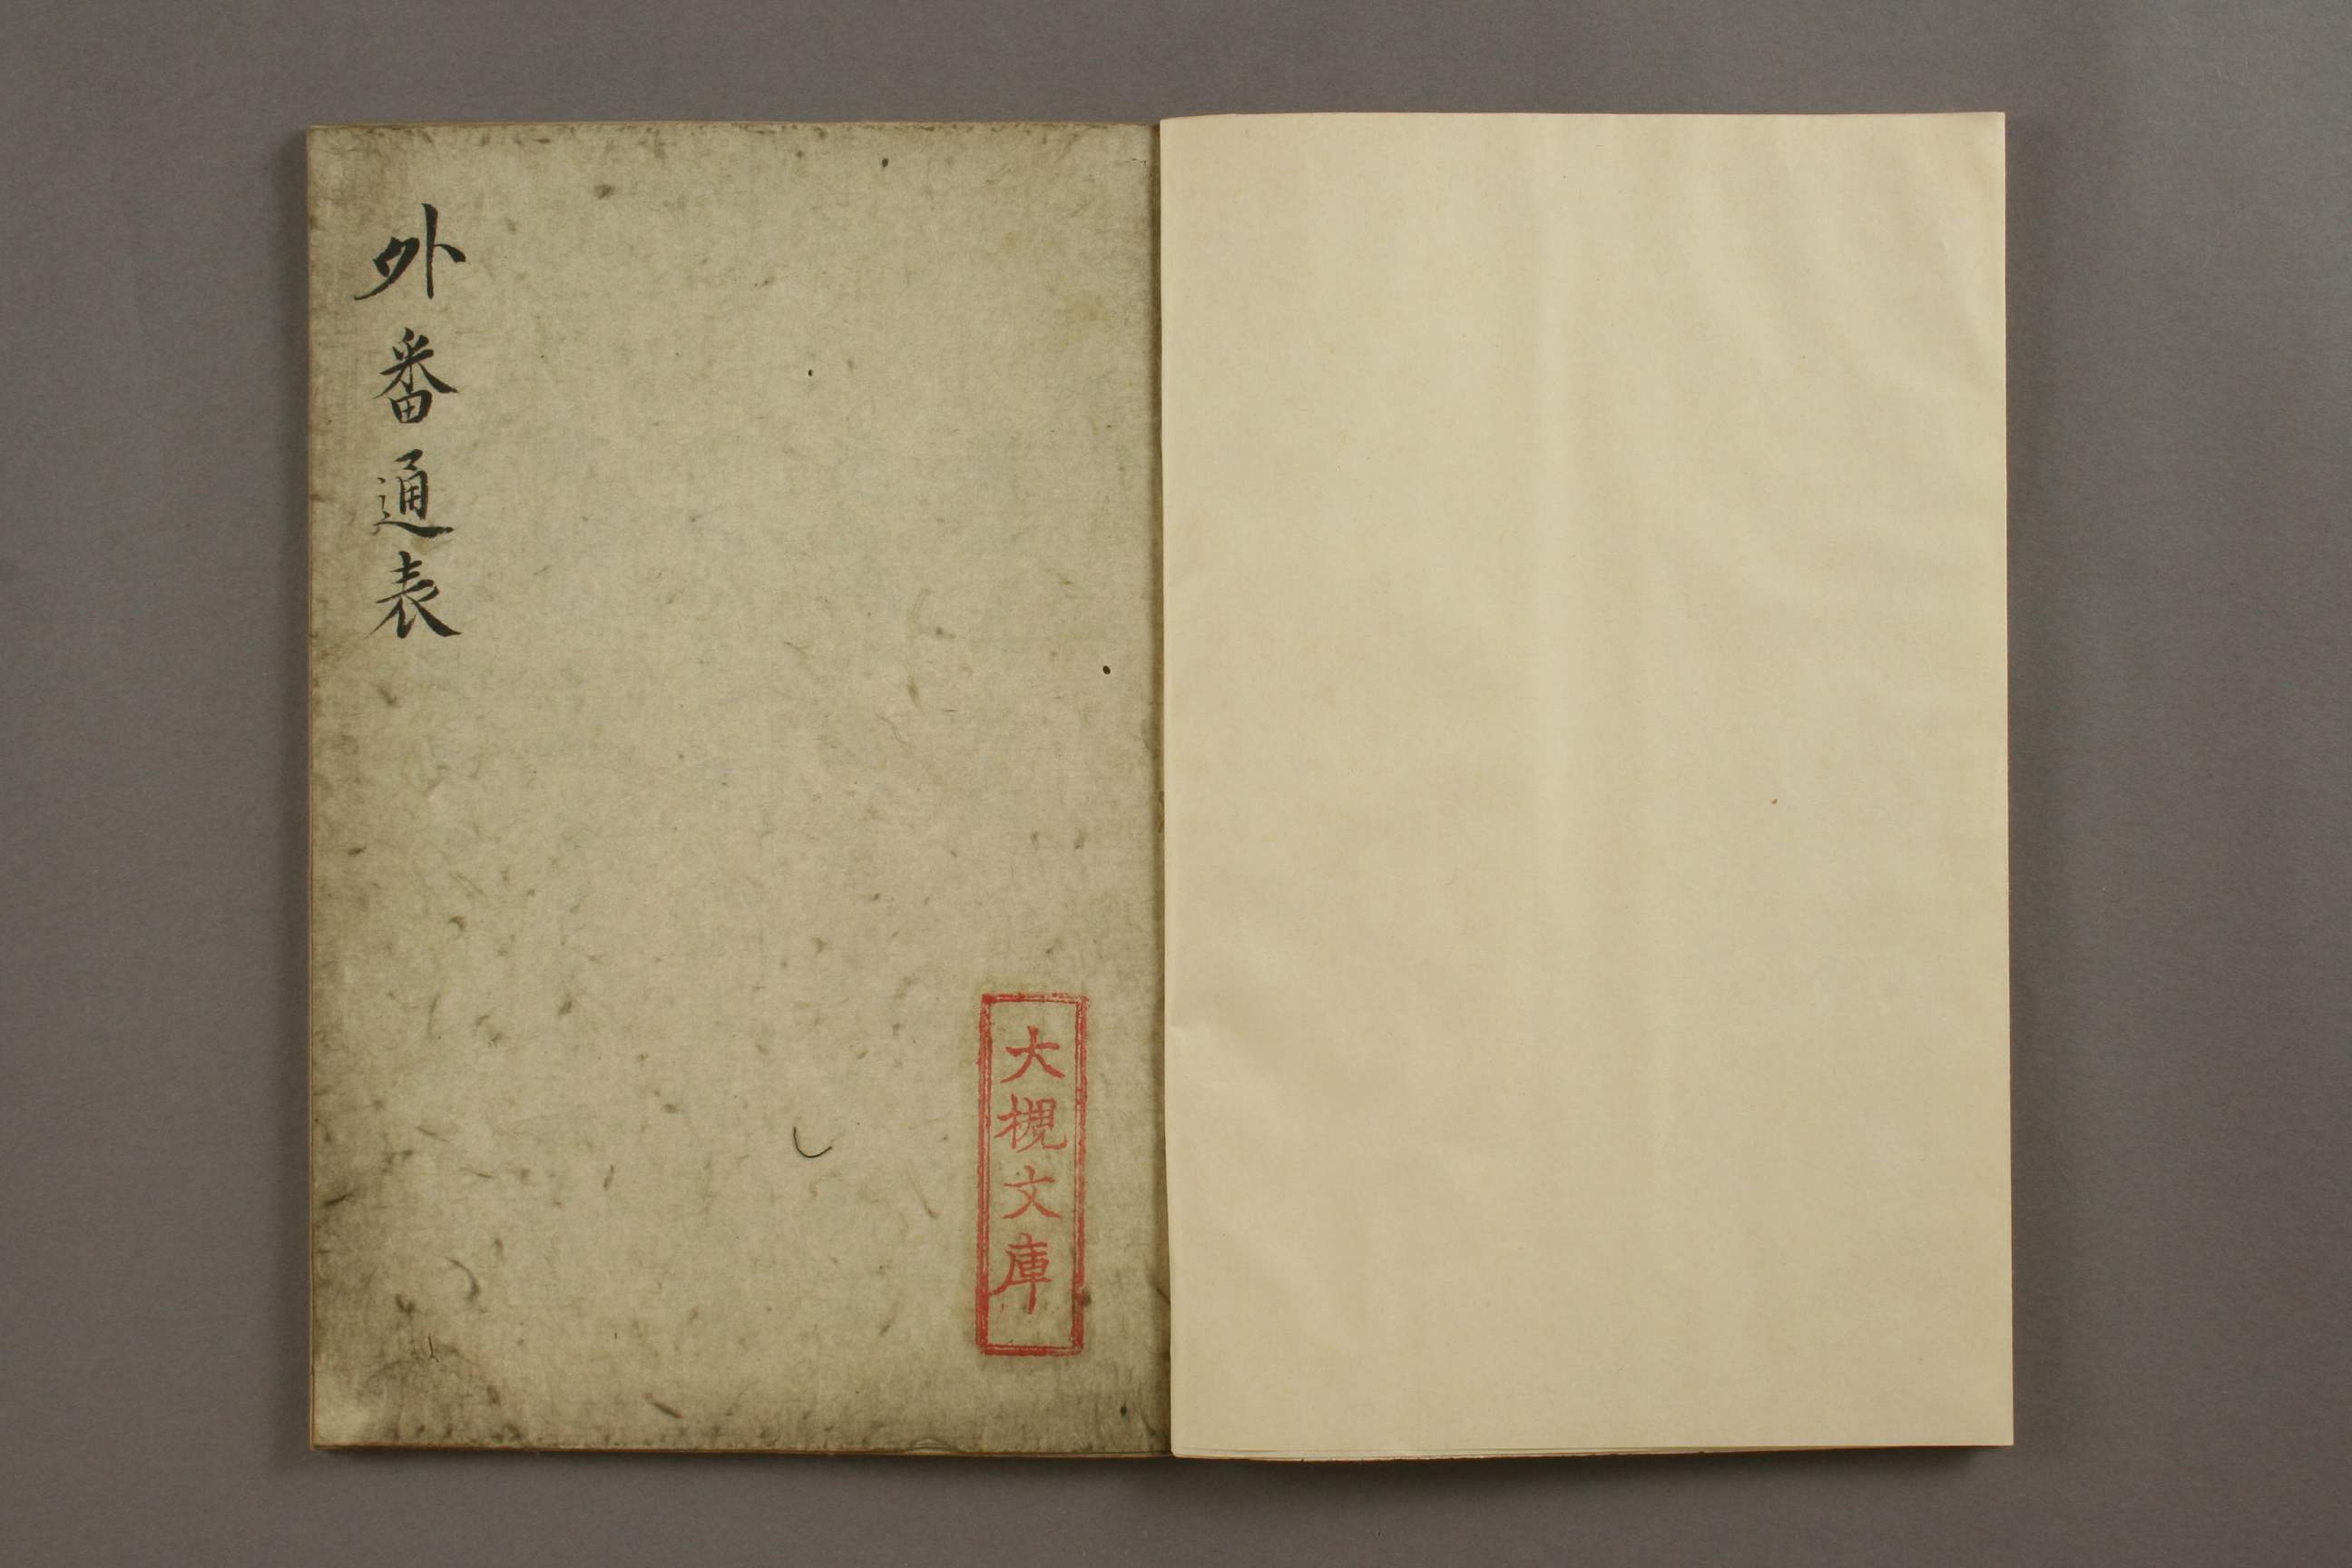 外番通表
大槻文庫